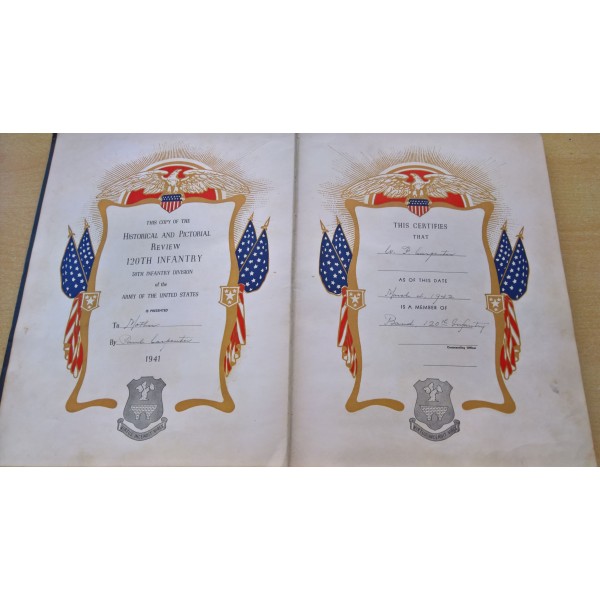 THIS COPY OF THE
HISTORICAL AND PICTORIAL
REVIEW
120TH INFANTRY
30TH INFANTRY DIVISION
of the
ARMY OF THE UNITED STATES
IS PRESENTED
To Mother
By Carpenter
1941
THIS CERTIFIES
THAT
Carpenter
AS OF THIS DATE
March 1942
IS A MEMBER OF
Band 120th Infantry
Commanding Officer